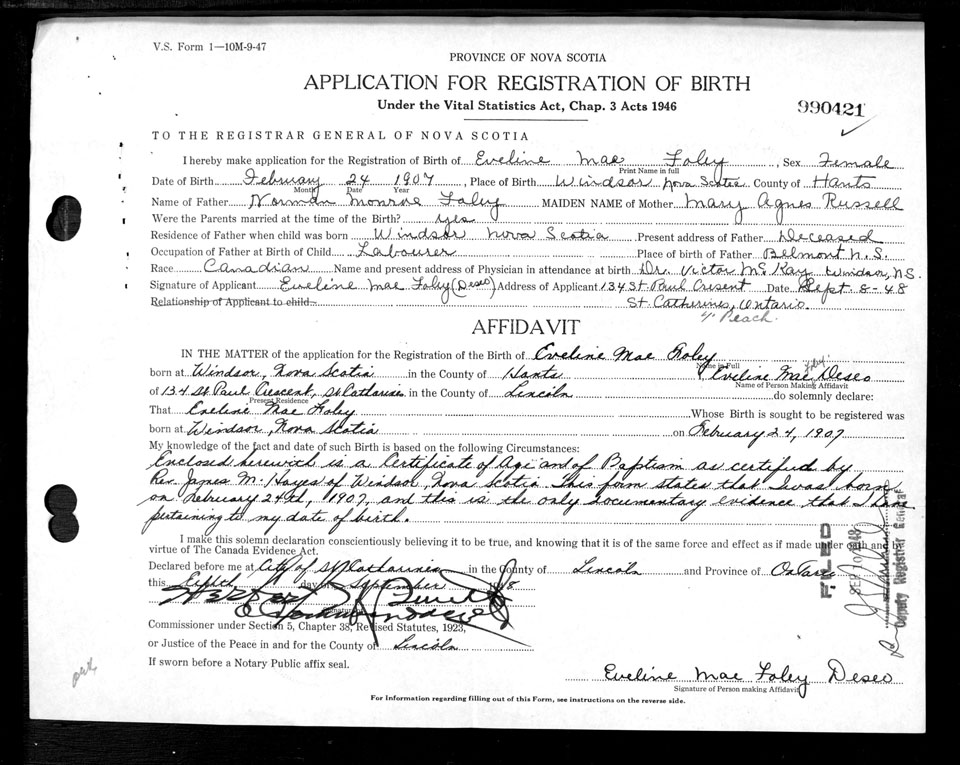 V.S. Form 1—10M-9-47
PROVINCE OF NOVA SCOTIA
APPLICATION FOR REGISTRATION OF BIRTH
Under the Vital Statistics Act, Chap. 3 Acts 1946
990421
TO THE REGISTRAR GENERAL OF NOVA SCOTIA
I hereby make application for the Registration of Birth of Eveline Mae Foley, Sex Female
Print Name in full
Date of Birth February 24 1907, Place of Birth Windsor Nova Scotia County of Hants
Month Date Year
Name of Father Norman Monroe Foley MAIDEN NAME of Mother Mary Agnes Russell
Were the Parents married at the time of the Birth? yes
Residence of Father when child was born Windsor Nova Scotia Present address of Father Deceased
Occupation of Father at Birth of Child Labourer Place of birth of Father Belmont N.S.
Race Canadian Name and present address of Physician in attendance at birth Dr. Victor McKay Windsor, N.S.
Signature of Applicant Eveline Mae Foley (Deseo) Address of Applicant 134 St. Paul Cresent Date Sept. 8-48
Relationship of Applicant to child St. Catherines, Ontario.
Peach.
AFFIDAVIT
IN THE MATTER of the application for the Registration of the Birth of Eveline Mae Foley
Name in Full
born at Windsor, Nova Scotia in the County of Hants I Eveline Mae Foley Deseo
Name of Person Making Affidavit
of 134 St. Paul Crescent, St Catharines in the County of Lincoln do solemnly declare:
Present Residence
That Eveline Mae Foley Whose Birth is sought to be registered was
born at Windsor, Nova Scotia on February 24, 1907
My knowledge of the fact and date of such Birth is based on the following Circumstances:
Enclosed herewith is a Certificate of Age and of Baptism as certified by
Rev. James M. Hayes of Windsor, Nova Scotia. This form states that I was born
on February 24th, 1907, and this is the only documentary evidence that I have
pertaining to my date of birth.
I make this solemn declaration conscientiously believing it to be true, and knowing that it is of the same force and effect as if made under oath and by
virtue of The Canada Evidence Act.
Declared before me at City of St Catharines in the County of Lincoln and Province of Ontario
this Eighth day of September 1948
Commissioner under Section 5, Chapter 38, Revised Statutes, 1923,
or Justice of the Peace in and for the County of Lincoln
If sworn before a Notary Public affix seal.
FILED
SEP 10 1948
Deputy Registrar General
Eveline Mae Foley Deseo
Signature of Person making Affidavit
For Information regarding filling out of this Form, see instructions on the reverse side.